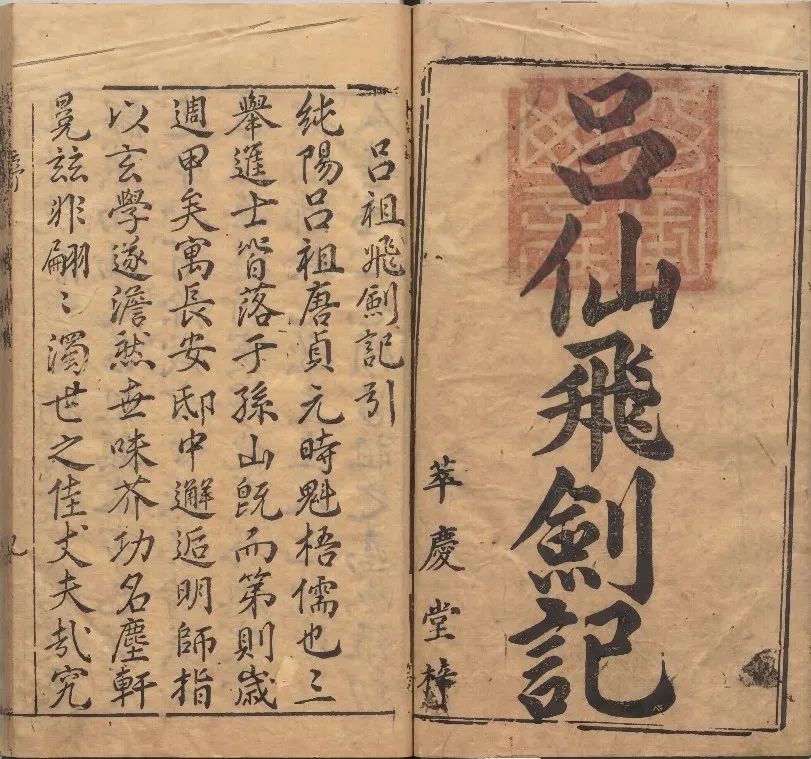 呂仙飛劍記
萃慶堂梓
呂祖飛劍記引
純陽呂祖唐貞元時魁梧儒也三
舉進士皆落于孫山旣而第則歲
週甲矣寓長安邸中邂逅明師指
以玄學遂澹然無味芥功名塵軒
冕玆非翩〻濁世之佳丈夫哉究